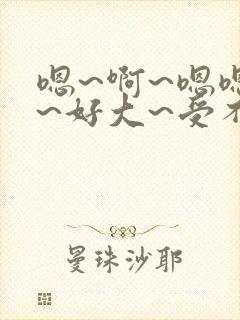 嗯~啊~嗯嗯
~好大~受不
曼珠沙耶